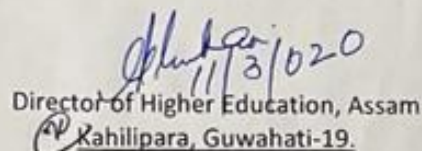 11/3/020
Director of Higher Education, Assam
Kahilipara, Guwahati-19.